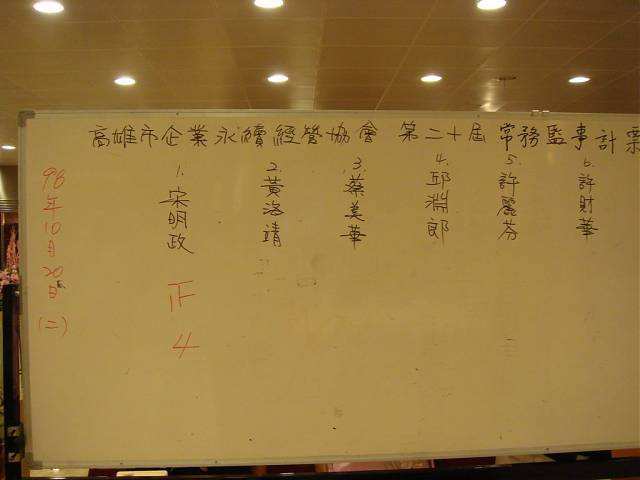 高雄市企業永續經營協會 第二十屆 常務監事計票
98年10月20日(二)
1.宋明政
2.黃海靖
3.蔡美華
4.邱淵郎
5.許麗芬
6.許財華
正
4